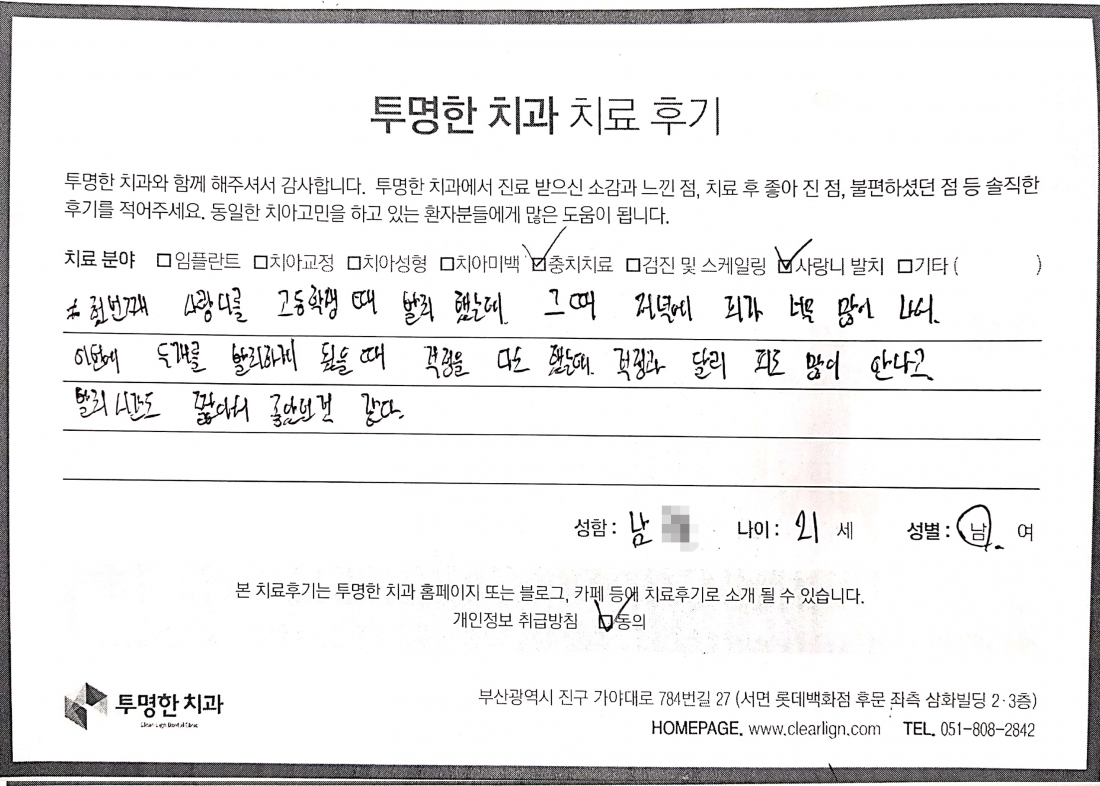 투명한 치과 치료 후기
투명한 치과와 함께 해주셔서 감사합니다. 투명한 치과에서 진료 받으신 소감과 느낀 점, 치료 후 좋아 진 점, 불편하셨던 점 등 솔직한
후기를 적어주세요. 동일한 치아고민을 하고 있는 환자분들에게 많은 도움이 됩니다.
치료 분야 □임플란트 □치아교정 □치아성형 □치아미백 ☑충치치료 □검진 및 스케일링 ☑사랑니 발치 □기타 ( )
첫번째 사랑니를 고등학생 때 발치 했는데. 그 때 저녁에 피가 너무 많이 나서.
이번에 두개를 발치하게 됬을 때 걱정을 다소 했는데. 걱정과 달리 피도 많이 안나고
발치 시간도 짧아서 좋았던것 같다.
성함 : 남 나이 : 21 세 성별 : 남. 여
본 치료후기는 투명한 치과 홈페이지 또는 블로그, 카페 등에 치료후기로 소개 될 수 있습니다.
개인정보 취급방침 ☑동의
투명한 치과
부산광역시 진구 가야대로 784번길 27 (서면 롯데백화점 후문 좌측 삼화빌딩 2·3층)
HOMEPAGE. www.clearlign.com TEL. 051-808-2842